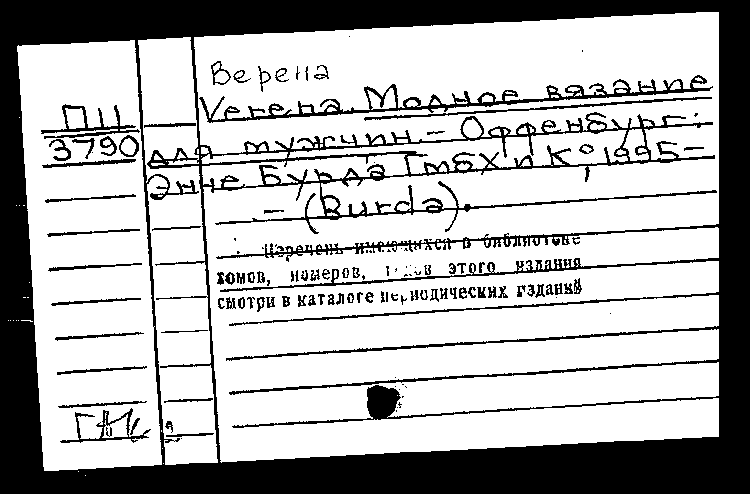 Верена
ПII Verena. Модное вязание
3790 для мужчин. – Оффенбург:
Энне Бурда ГмбХ и К°, 1995–
– (Burda).
Перечень имеющихся в библиотеке
томов, номеров, годов этого издания
смотри в каталоге периодических изданий